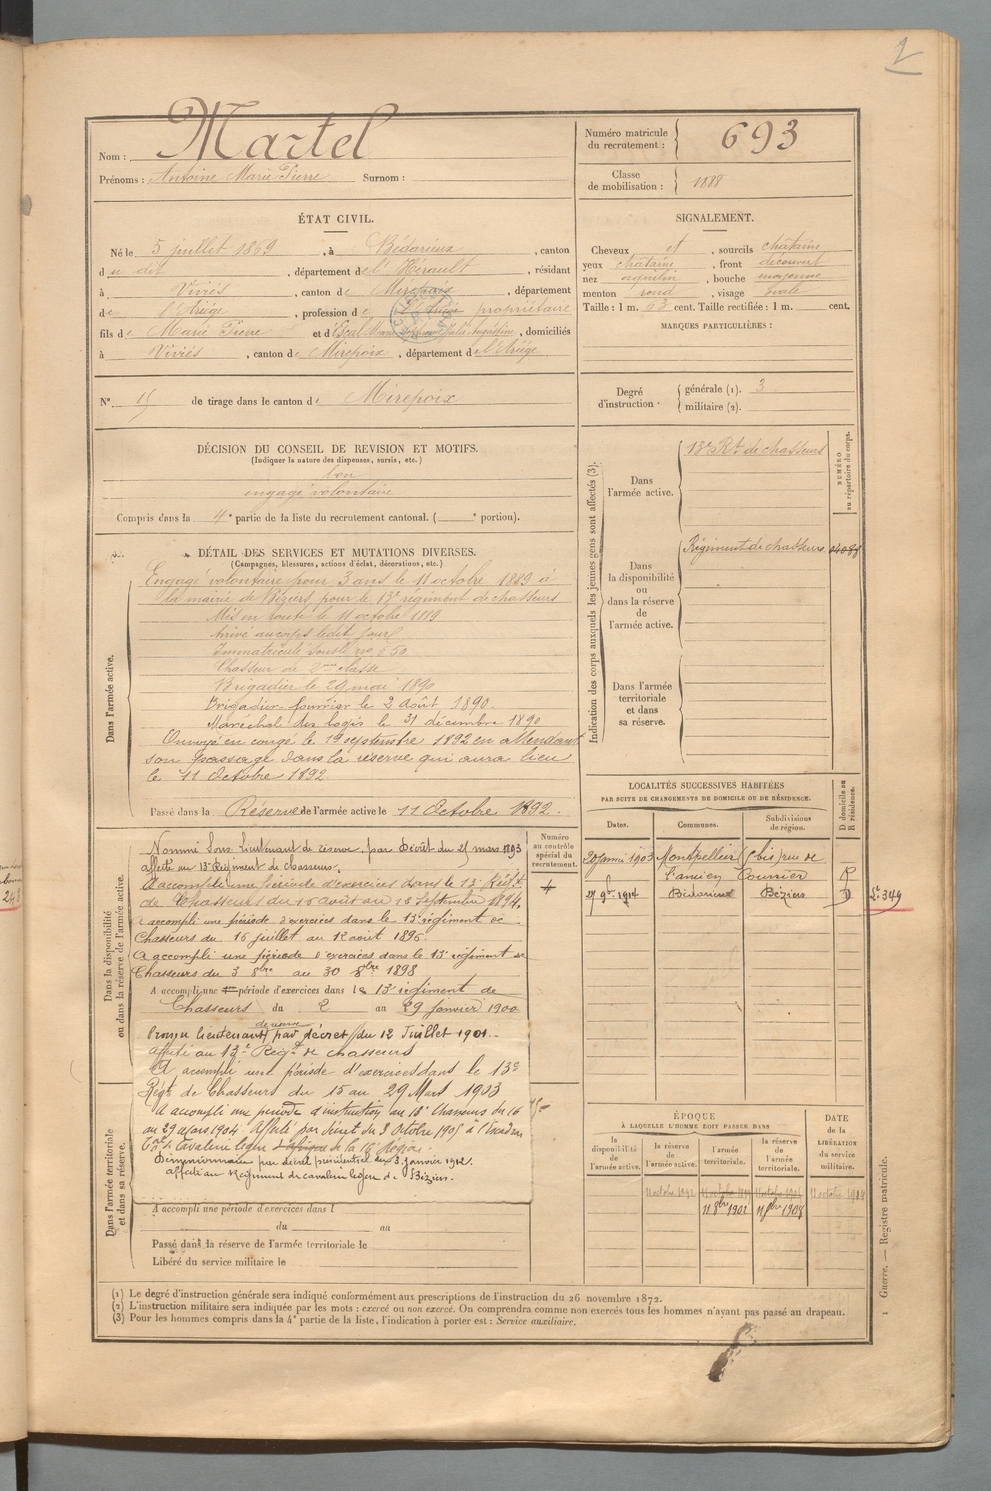 2
Nom : Martel
Prénoms : Antoine Marie Pierre Surnom :
Numéro matricule du recrutement : 693
Classe de mobilisation : 1888
ÉTAT CIVIL.
Né le 5 juillet 1869, à Bédarieux, canton
du dit, département de l'Hérault, résidant
à Viviès, canton de Mirepoix, département
de l'Ariège, profession de propriétaire
fils de Marie Pierre et d'Escal Marie Julie Augustine, domiciliés
à Viviès, canton de Mirepoix, département de l'Ariège
N° 15 de tirage dans le canton de Mirepoix
SIGNALEMENT.
Cheveux et, sourcils châtains
yeux châtains, front découvert
nez aquilin, bouche moyenne
menton rond, visage ovale
Taille : 1 m. 63 cent. Taille rectifiée : 1 m. cent.
MARQUES PARTICULIÈRES :
Degré d'instruction : générale (1). 3
militaire (2).
DÉCISION DU CONSEIL DE REVISION ET MOTIFS.
(Indiquer la nature des dispenses, sursis, etc.)
bon
engagé volontaire
Compris dans la 4e partie de la liste du recrutement cantonal. ( e portion).
DÉTAIL DES SERVICES ET MUTATIONS DIVERSES.
(Campagnes, blessures, actions d'éclat, décorations, etc.)
Dans l'armée active.
Engagé volontaire pour 3 ans le 11 octobre 1889 à
la mairie de Béziers pour le 13e régiment de chasseurs
Mis en route le 11 octobre 1889
Arrivé au corps ledit jour
Immatriculé sous le no
Chasseur de 2me classe
Brigadier le 29 mai 1890
Brigadier fourrier le 2 août 1890.
Maréchal des logis le 31 décembre 1890
Envoyé en congé le 19 septembre 1892 en attendant
son passage dans la réserve qui aura lieu
le 11 Octobre 1892
Passé dans la Réserve de l'armée active le 11 Octobre 1892.
Indication des corps auxquels les jeunes gens sont affectés (3).
Dans l'armée active.
13e Rt de chasseurs
NUMÉRO au répertoire du corps.
Dans la disponibilité ou dans la réserve de l'armée active.
Régiment de chasseurs
Dans l'armée territoriale et dans sa réserve.
LOCALITÉS SUCCESSIVES HABITÉES
PAR SUITE DE CHANGEMENTS DE DOMICILE OU DE RÉSIDENCE.
Dates. Communes. Subdivisions de région. D domicile ou R résidence.
1903 Montpellier (5 bis) rue de
l'ancien Courrier R
1914 Bédarieux Béziers D
349
Dans la disponibilité ou dans la réserve de l'armée active.
Numéro au contrôle spécial du recrutement.
Nommé Sous-Lieutenant de réserve, par Décret du 25 mars 1893
affecté au 13e Régiment de chasseurs.
A accompli une période d'exercices dans le 13e Régt
de Chasseurs du 16 août au 12 Septembre 1894.
A accompli une période d'exercices dans le 13e régiment de
Chasseurs du 16 juillet au 12 août 1896.
A accompli une période d'exercices dans le 13e régiment de
Chasseurs du 3 8bre au 30 8bre 1898
A accompli une période d'exercices dans le 13e régiment de
Chasseurs du 2 au 29 Janvier 1900
Promu lieutenant de réserve par décret du 12 Juillet 1901.
affecté au 13e Régt de chasseurs
A accompli une période d'exercices dans le 13e
Régt de Chasseurs du 15 au 29 Mars 1903
A accompli une période d'instruction au 13e Chasseurs du 16
au 29 mars 1904 Affecté par décret du 3 Octobre 1905 à l'Escadron
Tal de Cavalerie légère de la 16e Région.
Démissionnaire par décret présidentiel du 3 Janvier 1912.
Affecté au Régiment de cavalerie légère de Béziers.
Dans l'armée territoriale et dans sa réserve.
A accompli une période d'exercices dans l
du au
Passé dans la réserve de l'armée territoriale le
Libéré du service militaire le
ÉPOQUE
À LAQUELLE L'HOMME DOIT PASSER DANS
la disponibilité de l'armée active.
la réserve de l'armée active.
l'armée territoriale.
la réserve de l'armée territoriale.
DATE de la LIBÉRATION du service militaire.
11 octobre 1892
11 8bre 1902
11 8bre 1908
(1) Le degré d'instruction générale sera indiqué conformément aux prescriptions de l'instruction du 26 novembre 1872.
(2) L'instruction militaire sera indiquée par les mots : exercé ou non exercé. On comprendra comme non exercés tous les hommes n'ayant pas passé au drapeau.
(3) Pour les hommes compris dans la 4e partie de la liste, l'indication à porter est : Service auxiliaire.
1 Guerre. — Registre matricule.